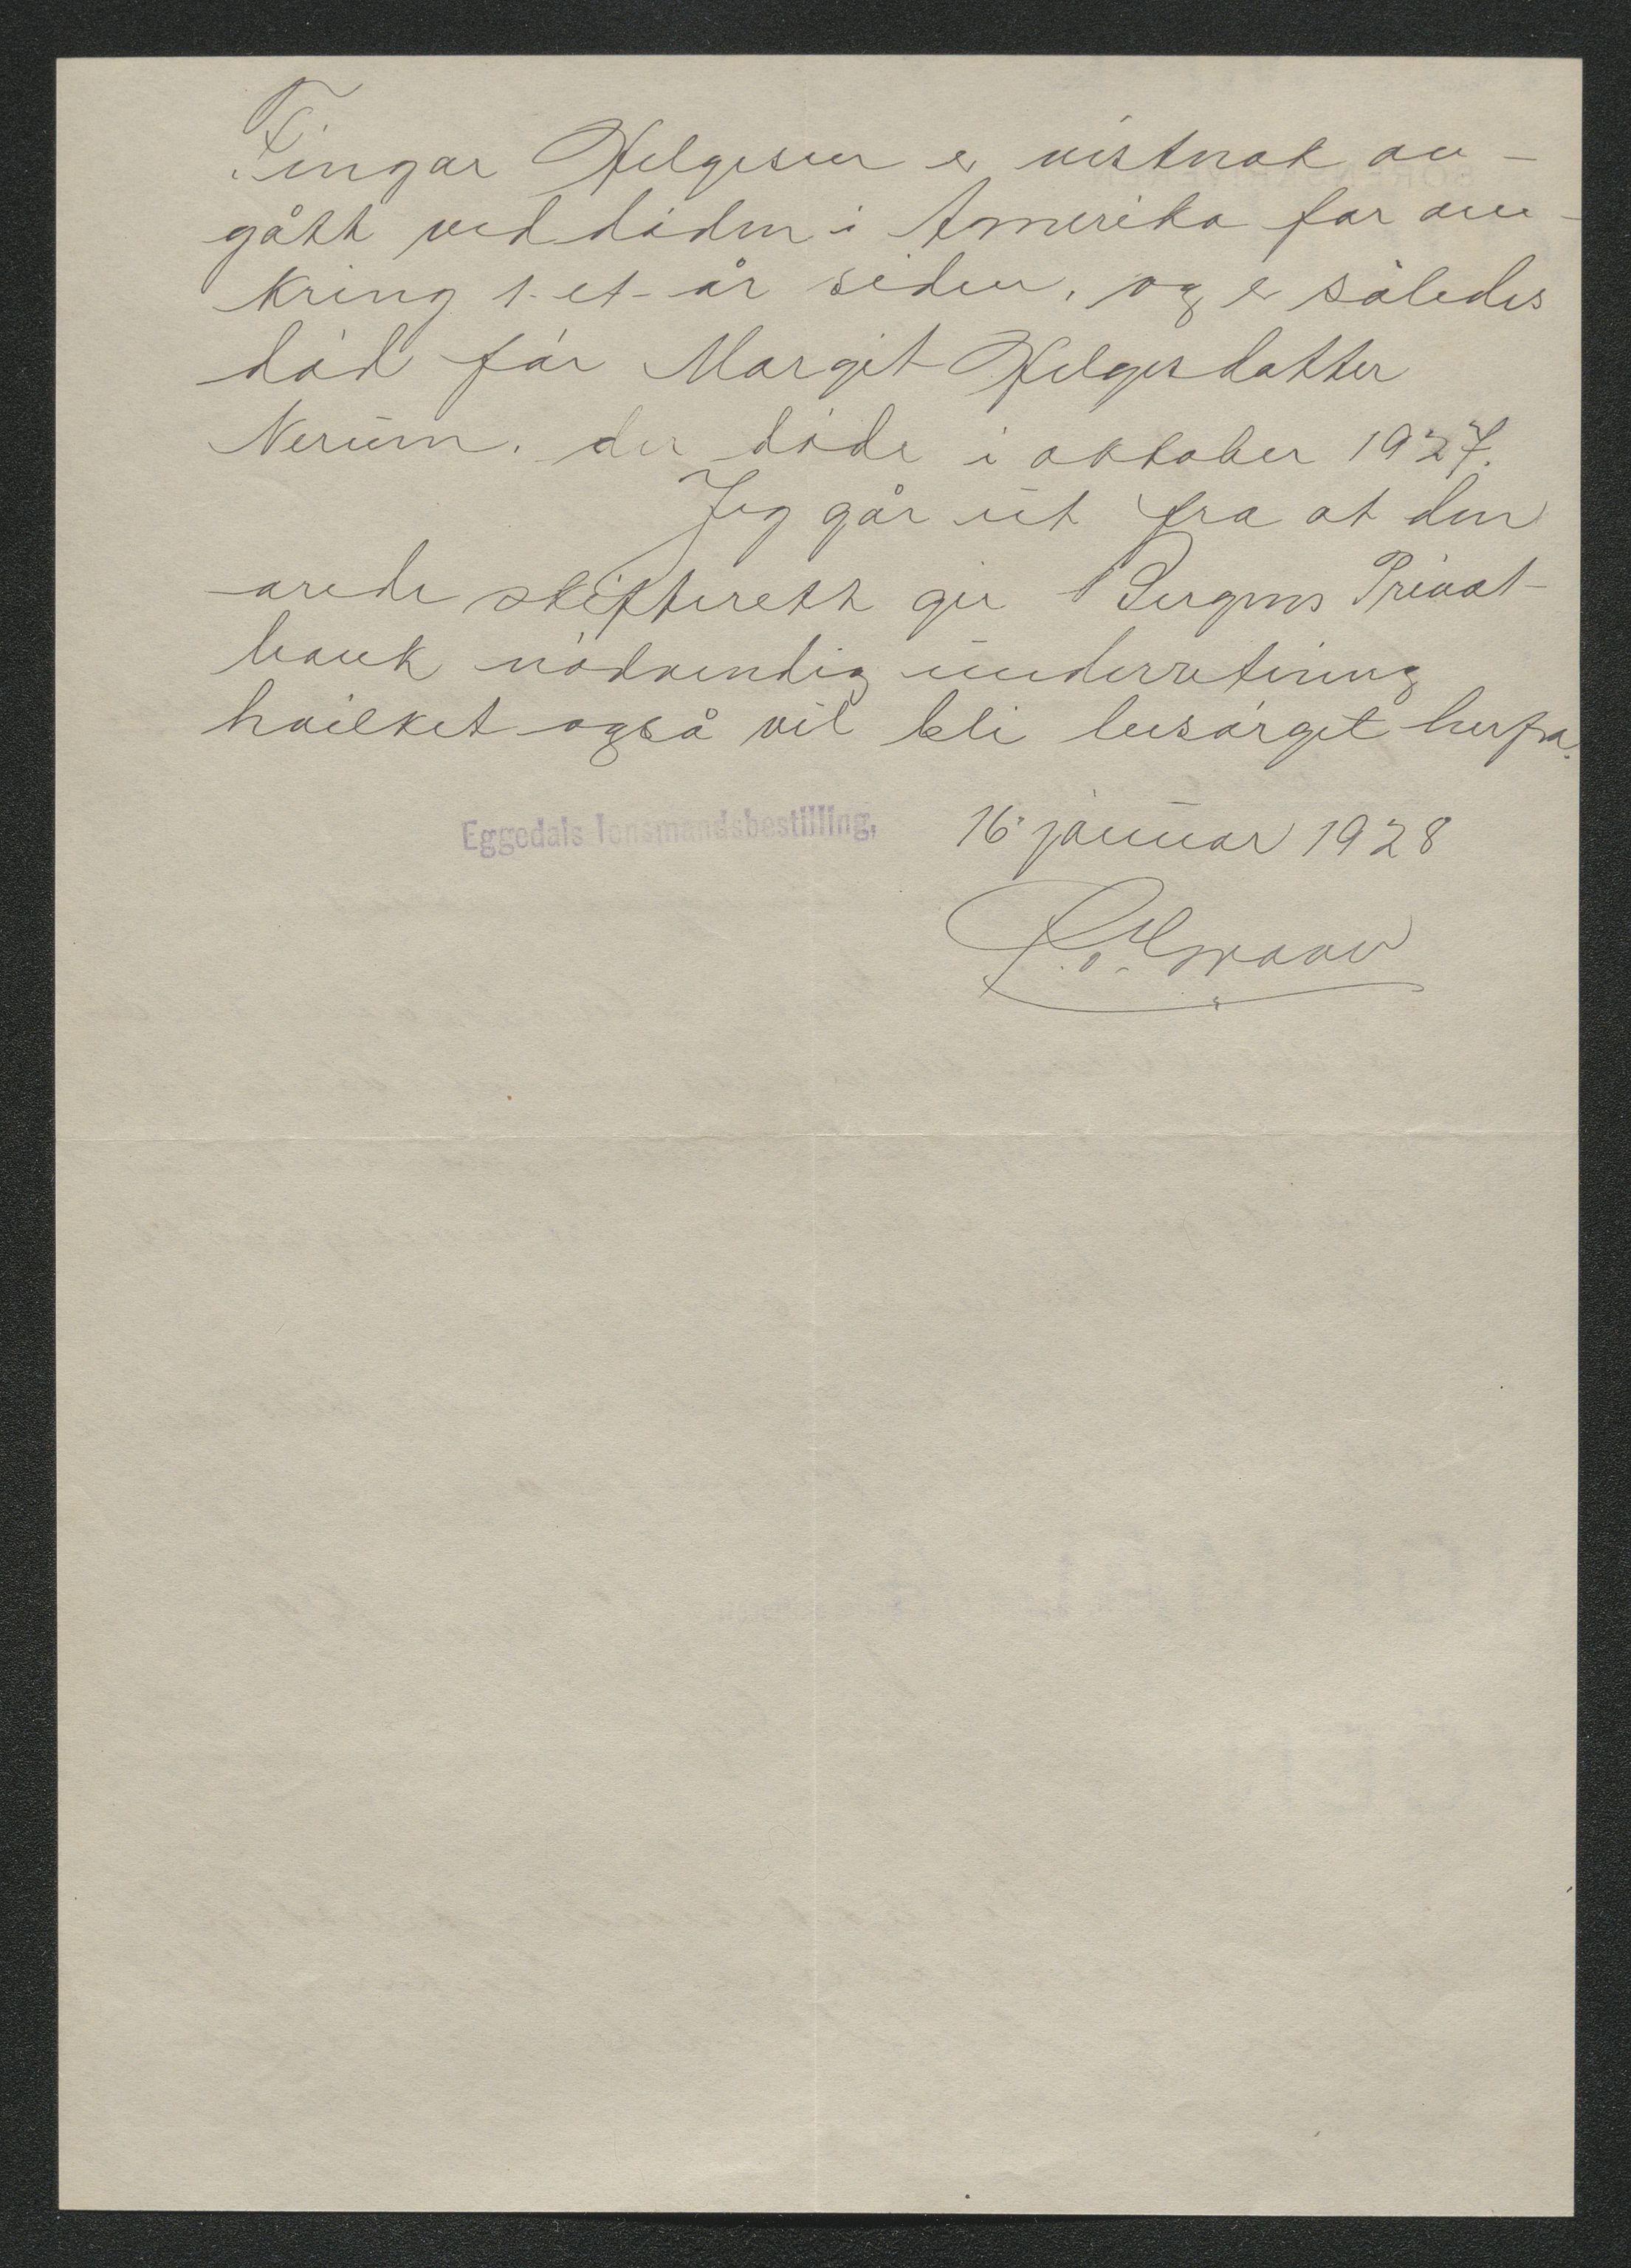 Tingar Helgesen er vistnok av-
gått ved døden i Amerika for om-
kring 1-et-år siden, og er således
død før Margit Helgesdatter
Nerum, der døde i oktober 1927.
Jeg går ut fra at den
ærede skifterett gir Bergens Privat-
bank nödvendig underretning
hvilket også vil bli besørget herfra.
Eggedals lensmandsbestilling, 16 januar 1928